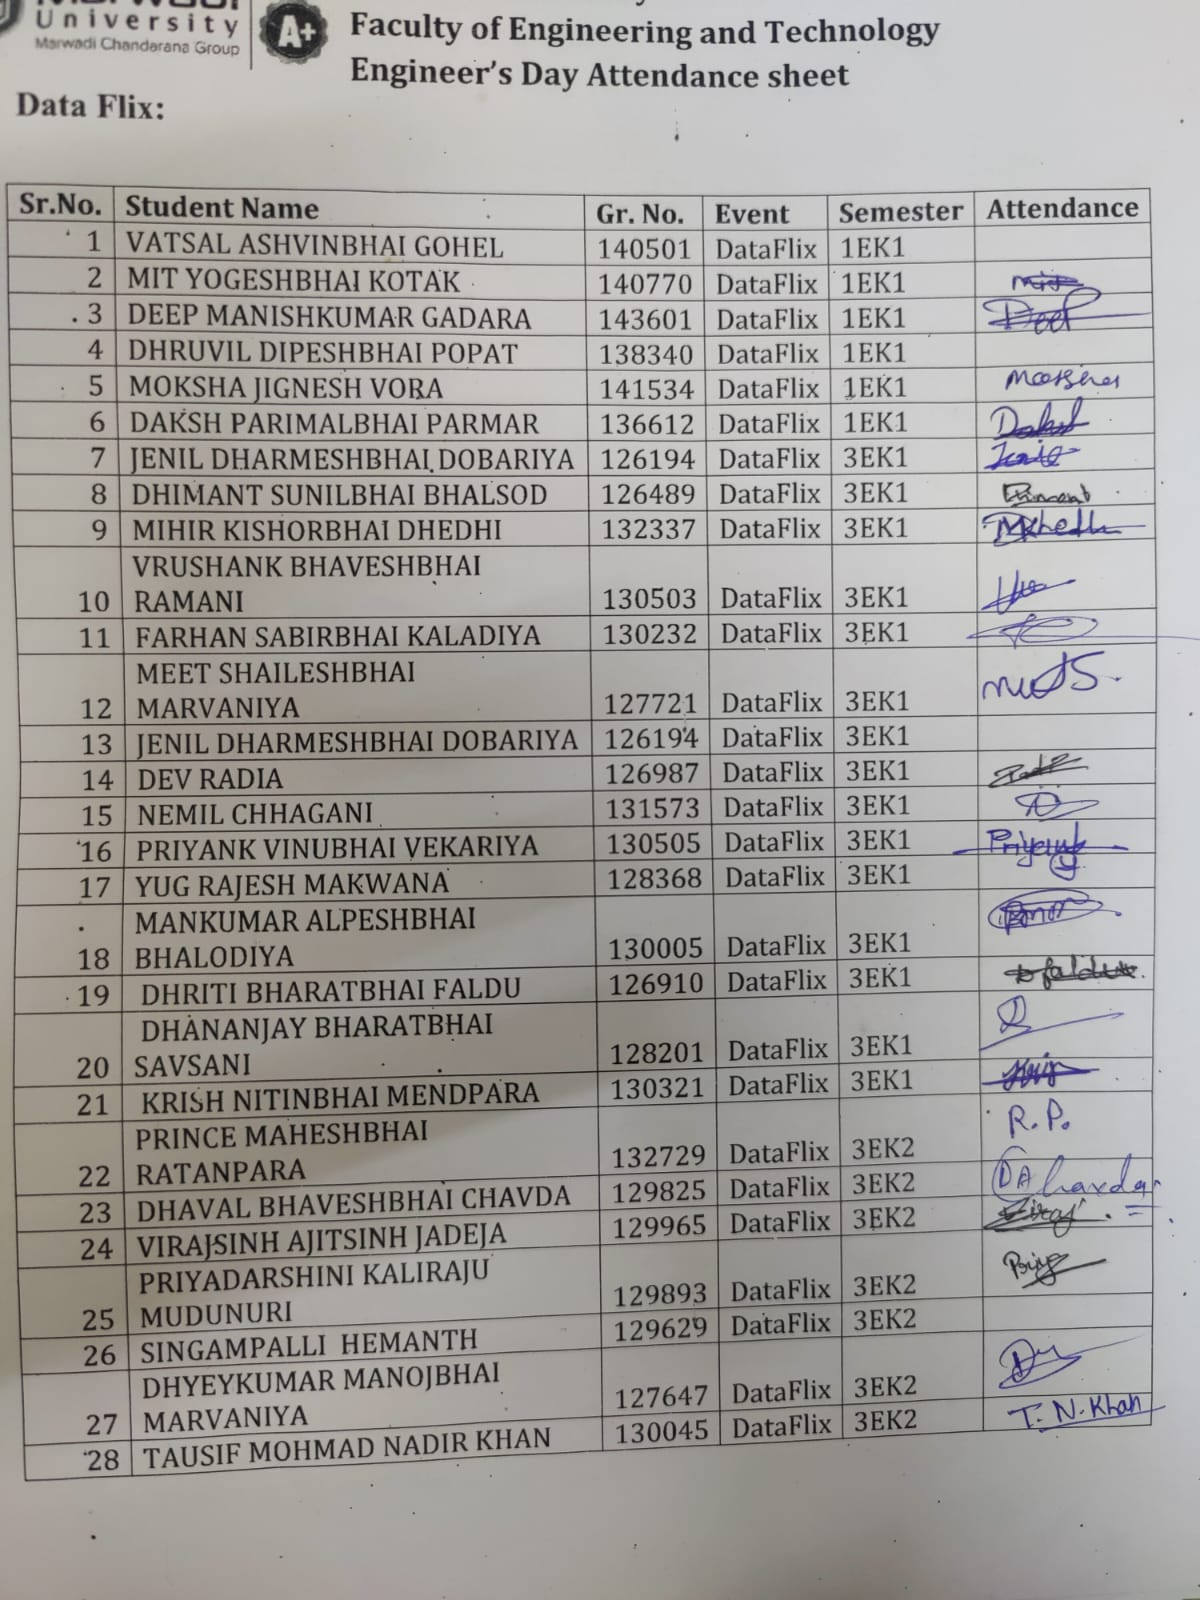 University
Marwadi Chandarana Group
A+
Faculty of Engineering and Technology
Engineer's Day Attendance sheet
Data Flix:
Sr.No. Student Name Gr. No. Event Semester Attendance
1 VATSAL ASHVINBHAI GOHEL 140501 DataFlix 1EK1
2 MIT YOGESHBHAI KOTAK 140770 DataFlix 1EK1 Mit
3 DEEP MANISHKUMAR GADARA 143601 DataFlix 1EK1 Deep
4 DHRUVIL DIPESHBHAI POPAT 138340 DataFlix 1EK1
5 MOKSHA JIGNESH VORA 141534 DataFlix 1EK1
6 DAKSH PARIMALBHAI PARMAR 136612 DataFlix 1EK1 Daksh
7 JENIL DHARMESHBHAI DOBARIYA 126194 DataFlix 3EK1
8 DHIMANT SUNILBHAI BHALSOD 126489 DataFlix 3EK1
9 MIHIR KISHORBHAI DHEDHI 132337 DataFlix 3EK1
VRUSHANK BHAVESHBHAI
10 RAMANI 130503 DataFlix 3EK1
11 FARHAN SABIRBHAI KALADIYA 130232 DataFlix 3EK1
MEET SHAILESHBHAI
12 MARVANIYA 127721 DataFlix 3EK1
13 JENIL DHARMESHBHAI DOBARIYA 126194 DataFlix 3EK1
14 DEV RADIA 126987 DataFlix 3EK1
15 NEMIL CHHAGANI 131573 DataFlix 3EK1
16 PRIYANK VINUBHAI VEKARIYA 130505 DataFlix 3EK1 Priyank
17 YUG RAJESH MAKWANA 128368 DataFlix 3EK1
MANKUMAR ALPESHBHAI
18 BHALODIYA 130005 DataFlix 3EK1
19 DHRITI BHARATBHAI FALDU 126910 DataFlix 3EK1 faldu
DHANANJAY BHARATBHAI
20 SAVSANI 128201 DataFlix 3EK1
21 KRISH NITINBHAI MENDPARA 130321 DataFlix 3EK1
PRINCE MAHESHBHAI R.P.
22 RATANPARA 132729 DataFlix 3EK2
23 DHAVAL BHAVESHBHAI CHAVDA 129825 DataFlix 3EK2
24 VIRAJSINH AJITSINH JADEJA 129965 DataFlix 3EK2
PRIYADARSHINI KALIRAJU
25 MUDUNURI 129893 DataFlix 3EK2
26 SINGAMPALLI HEMANTH 129629 DataFlix 3EK2
DHYEYKUMAR MANOJBHAI
27 MARVANIYA 127647 DataFlix 3EK2
28 TAUSIF MOHMAD NADIR KHAN 130045 DataFlix 3EK2 T. N. Khan